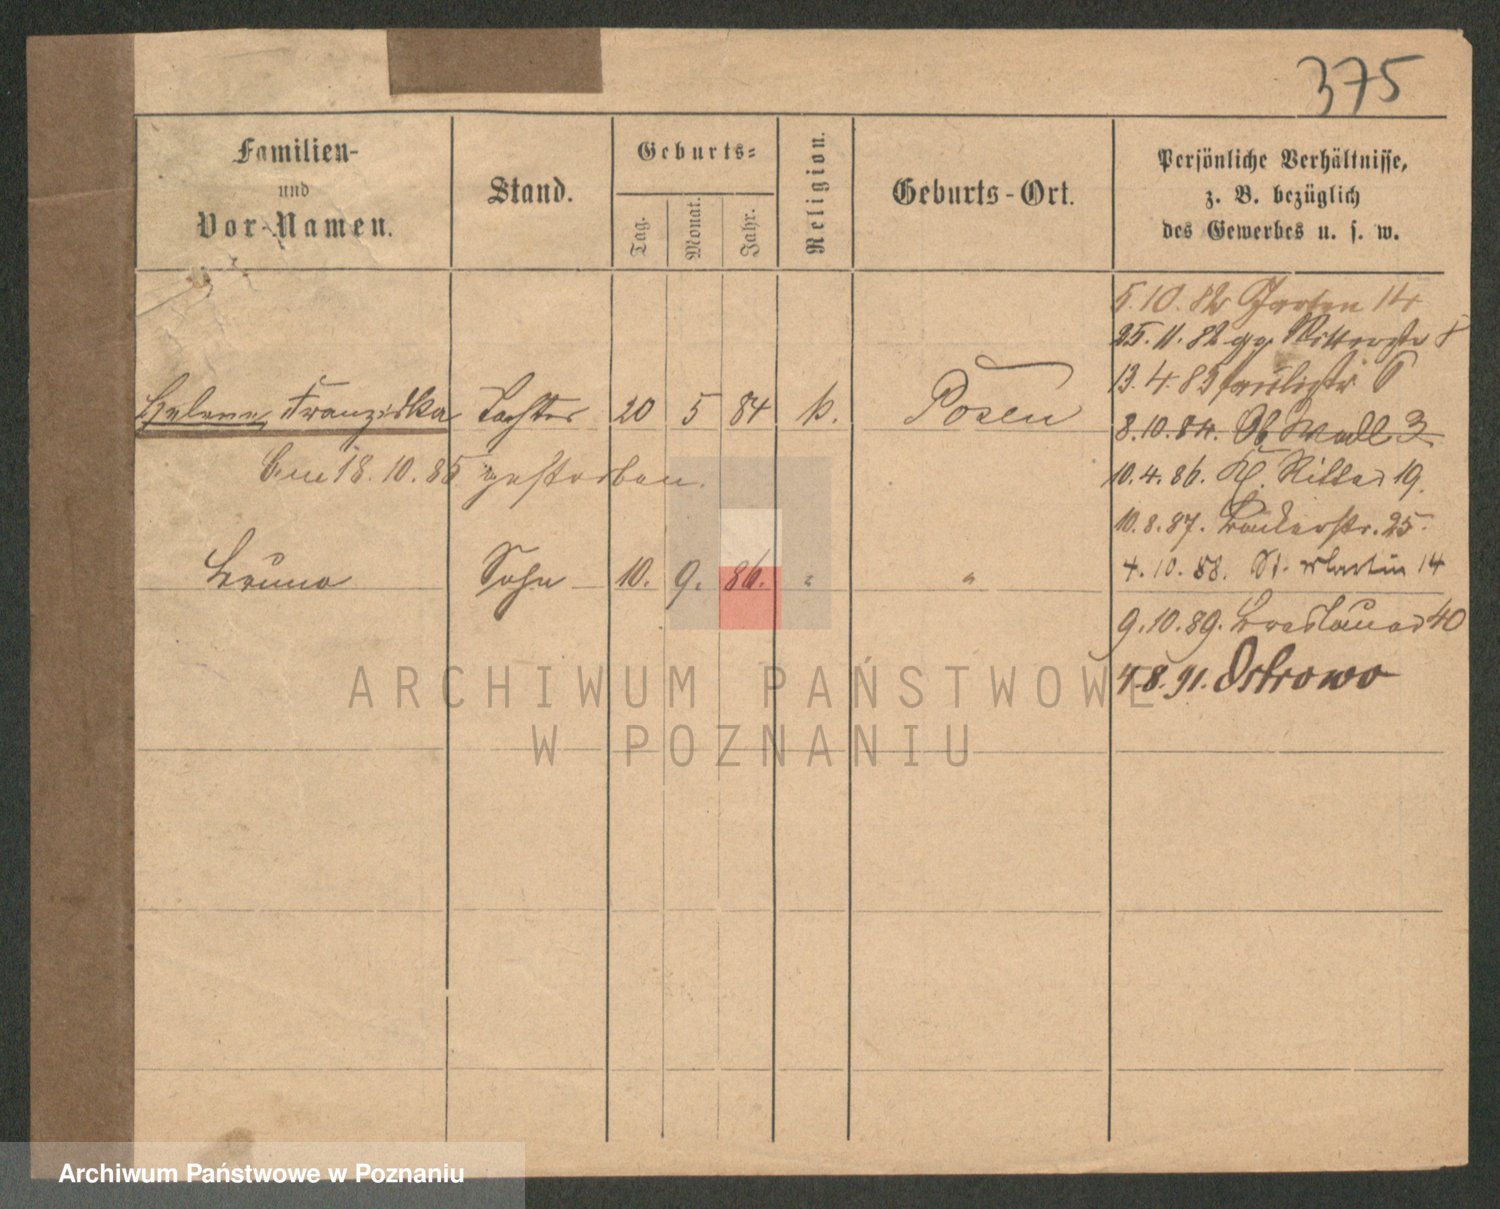 375
Familien-
und
Vor-Namen.
Stand.
Geburts-
Tag.
Monat.
Jahr.
Religion.
Geburts-Ort.
Persönliche Verhältnisse,
z. B. bezüglich
des Gewerbes u. s. w.
5.10.82 Garten 14
25.11.82 Ritterstr 8
13.4.83 6
Helene Franziska Tochter 20 5 84 k. Posen
8.10.84. Ob Wall 3
am 18.10.85 gestorben.
10.4.86. Kl. Ritter 19.
10.8.87. Bäckerstr. 25.
Bruno Sohn 10. 9. 86. " "
4.10.88. St. Martin 14
9.10.89. Breslauer 40
4.8.91. Ostrowo
ARCHIWUM PAŃSTWOWE
W POZNANIU
Archiwum Państwowe w Poznaniu